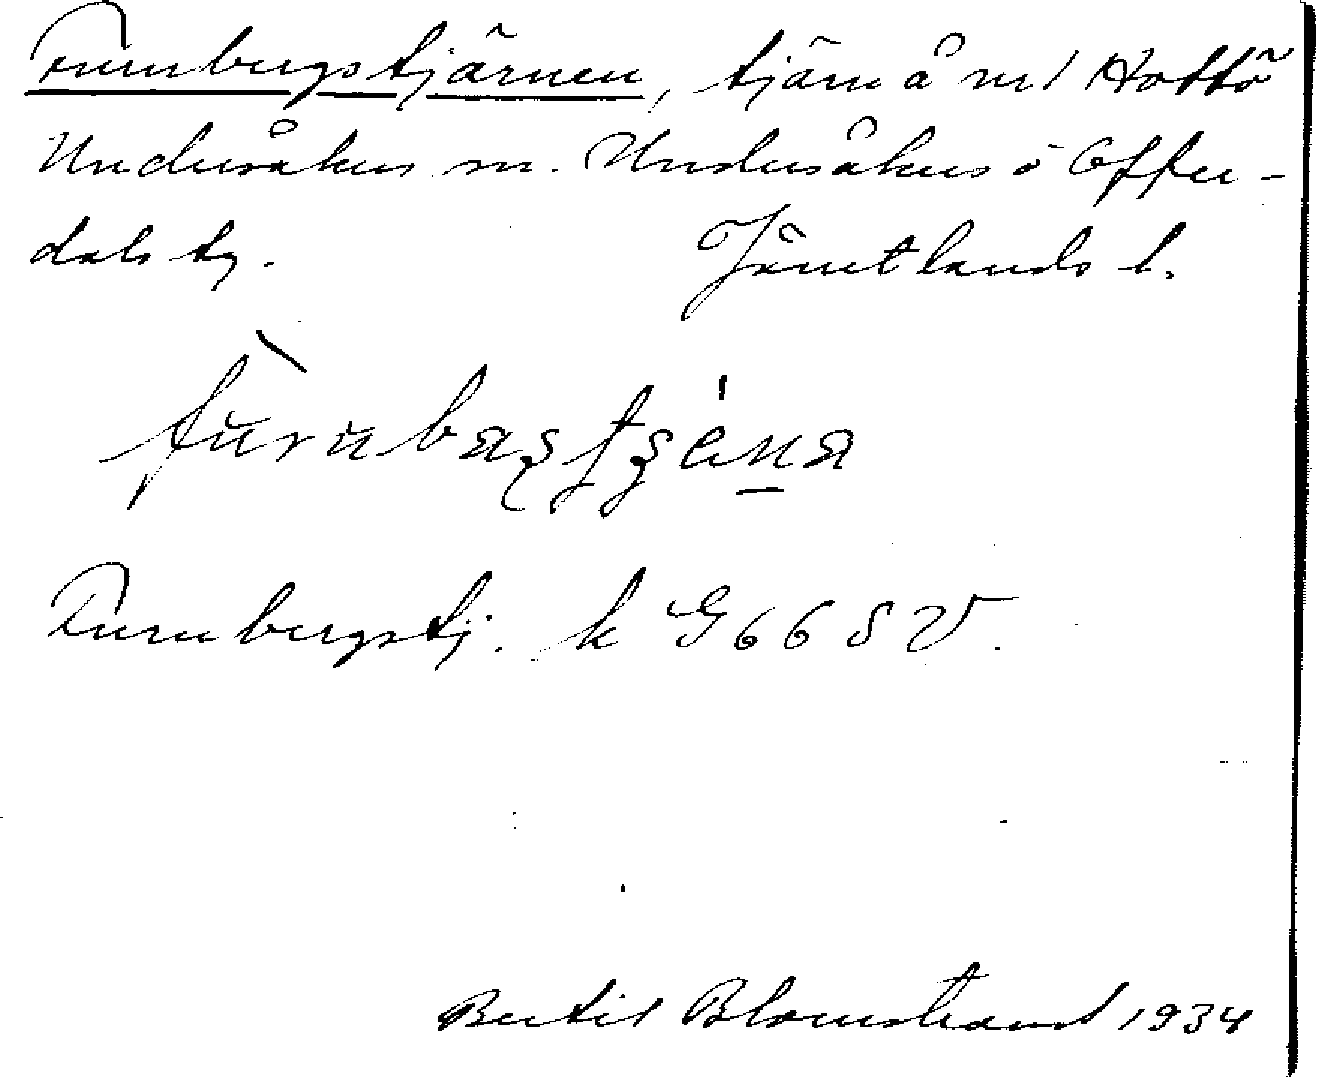 Furubergstjärnen, tjärn å nr 1 Hottö
Undersåkers sn. Undersåkers o Offer-
dals tg. Jämtlands l.
Furubergstj. k G 66 S V.
Bertil Blomstrand 1934